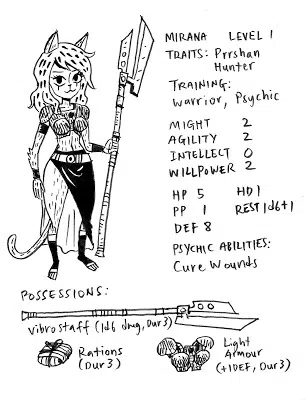 MIRANA LEVEL 1
TRAITS: Prrshan
Hunter
TRAINING:
Warrior, Psychic
MIGHT 2
AGILITY 2
INTELLECT 0
WILLPOWER 2
HP 5 HD 1
PP 1 REST 1d6+1
DEF 8
PSYCHIC ABILITIES:
Cure Wounds
POSSESSIONS:
vibrostaff (1d6 dmg, Dur 3)
Rations
(Dur 3)
Light
Armour
(+1 DEF, Dur 3)